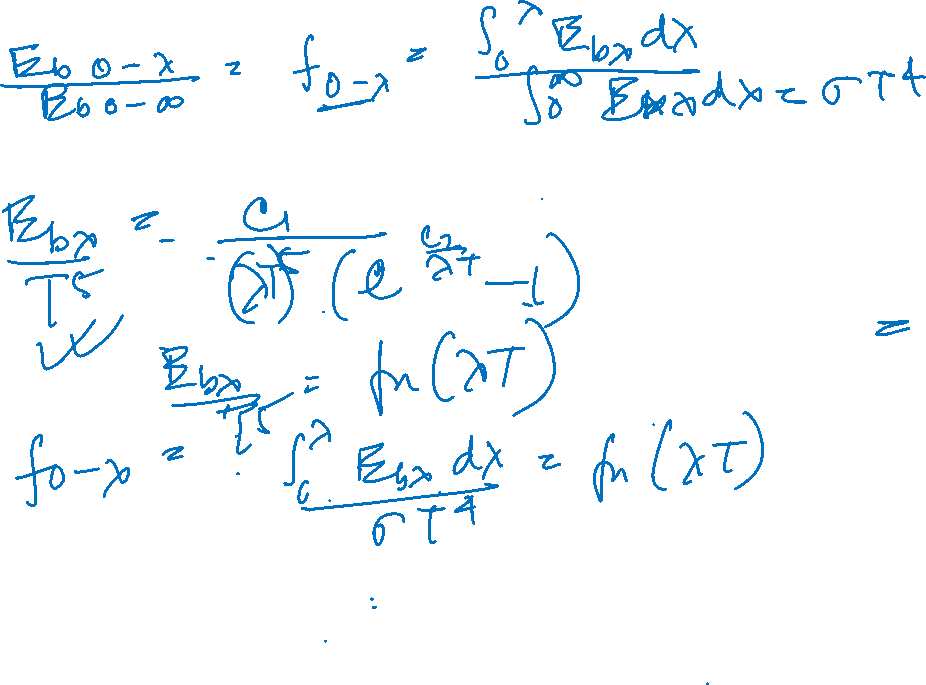 E_{b 0-λ} / E_{b 0-∞} = f_{0-λ} = ∫_0^λ E_{bλ} dλ / ∫_0^∞ E_{bλ} dλ = σT^4
E_{bλ} / T^5 = C_1 / (λT)^5 (e^{C_2/λT} - 1)
=
E_{bλ} / T^5 = fn(λT)
f_{0-λ} = ∫_0^λ E_{bλ} dλ / σT^4 = fn(λT)